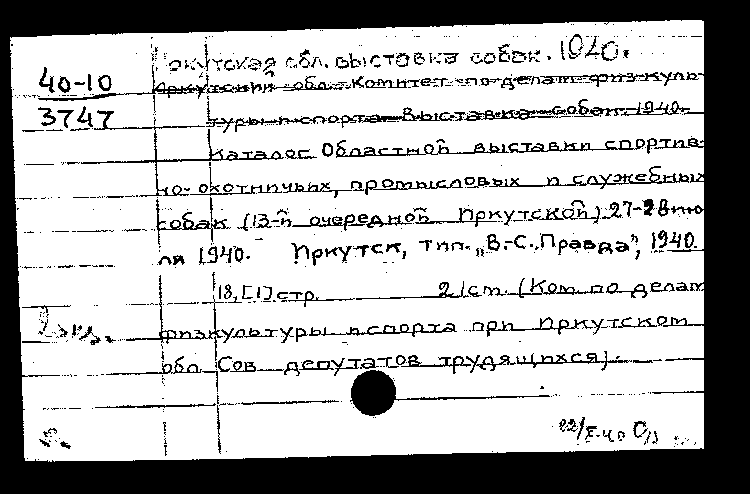 Иркутская обл. выставка собак. 1940.
40-10
3747
Иркутский обл. Комитет по делам физкуль-
туры и спорта Выставка собак. 1940.
Каталог Областной выставки спортив-
но-охотничьих, промысловых и служебных
собак (13-й очередной Иркутской) 27-28 ию-
ля 1940. Иркутск, тип. „В.-С. Правда", 1940
18, [1] стр. 21 см. (Ком. по делам
физкультуры и спорта при Иркутском
2 экз.
обл Сов депутатов трудящихся).